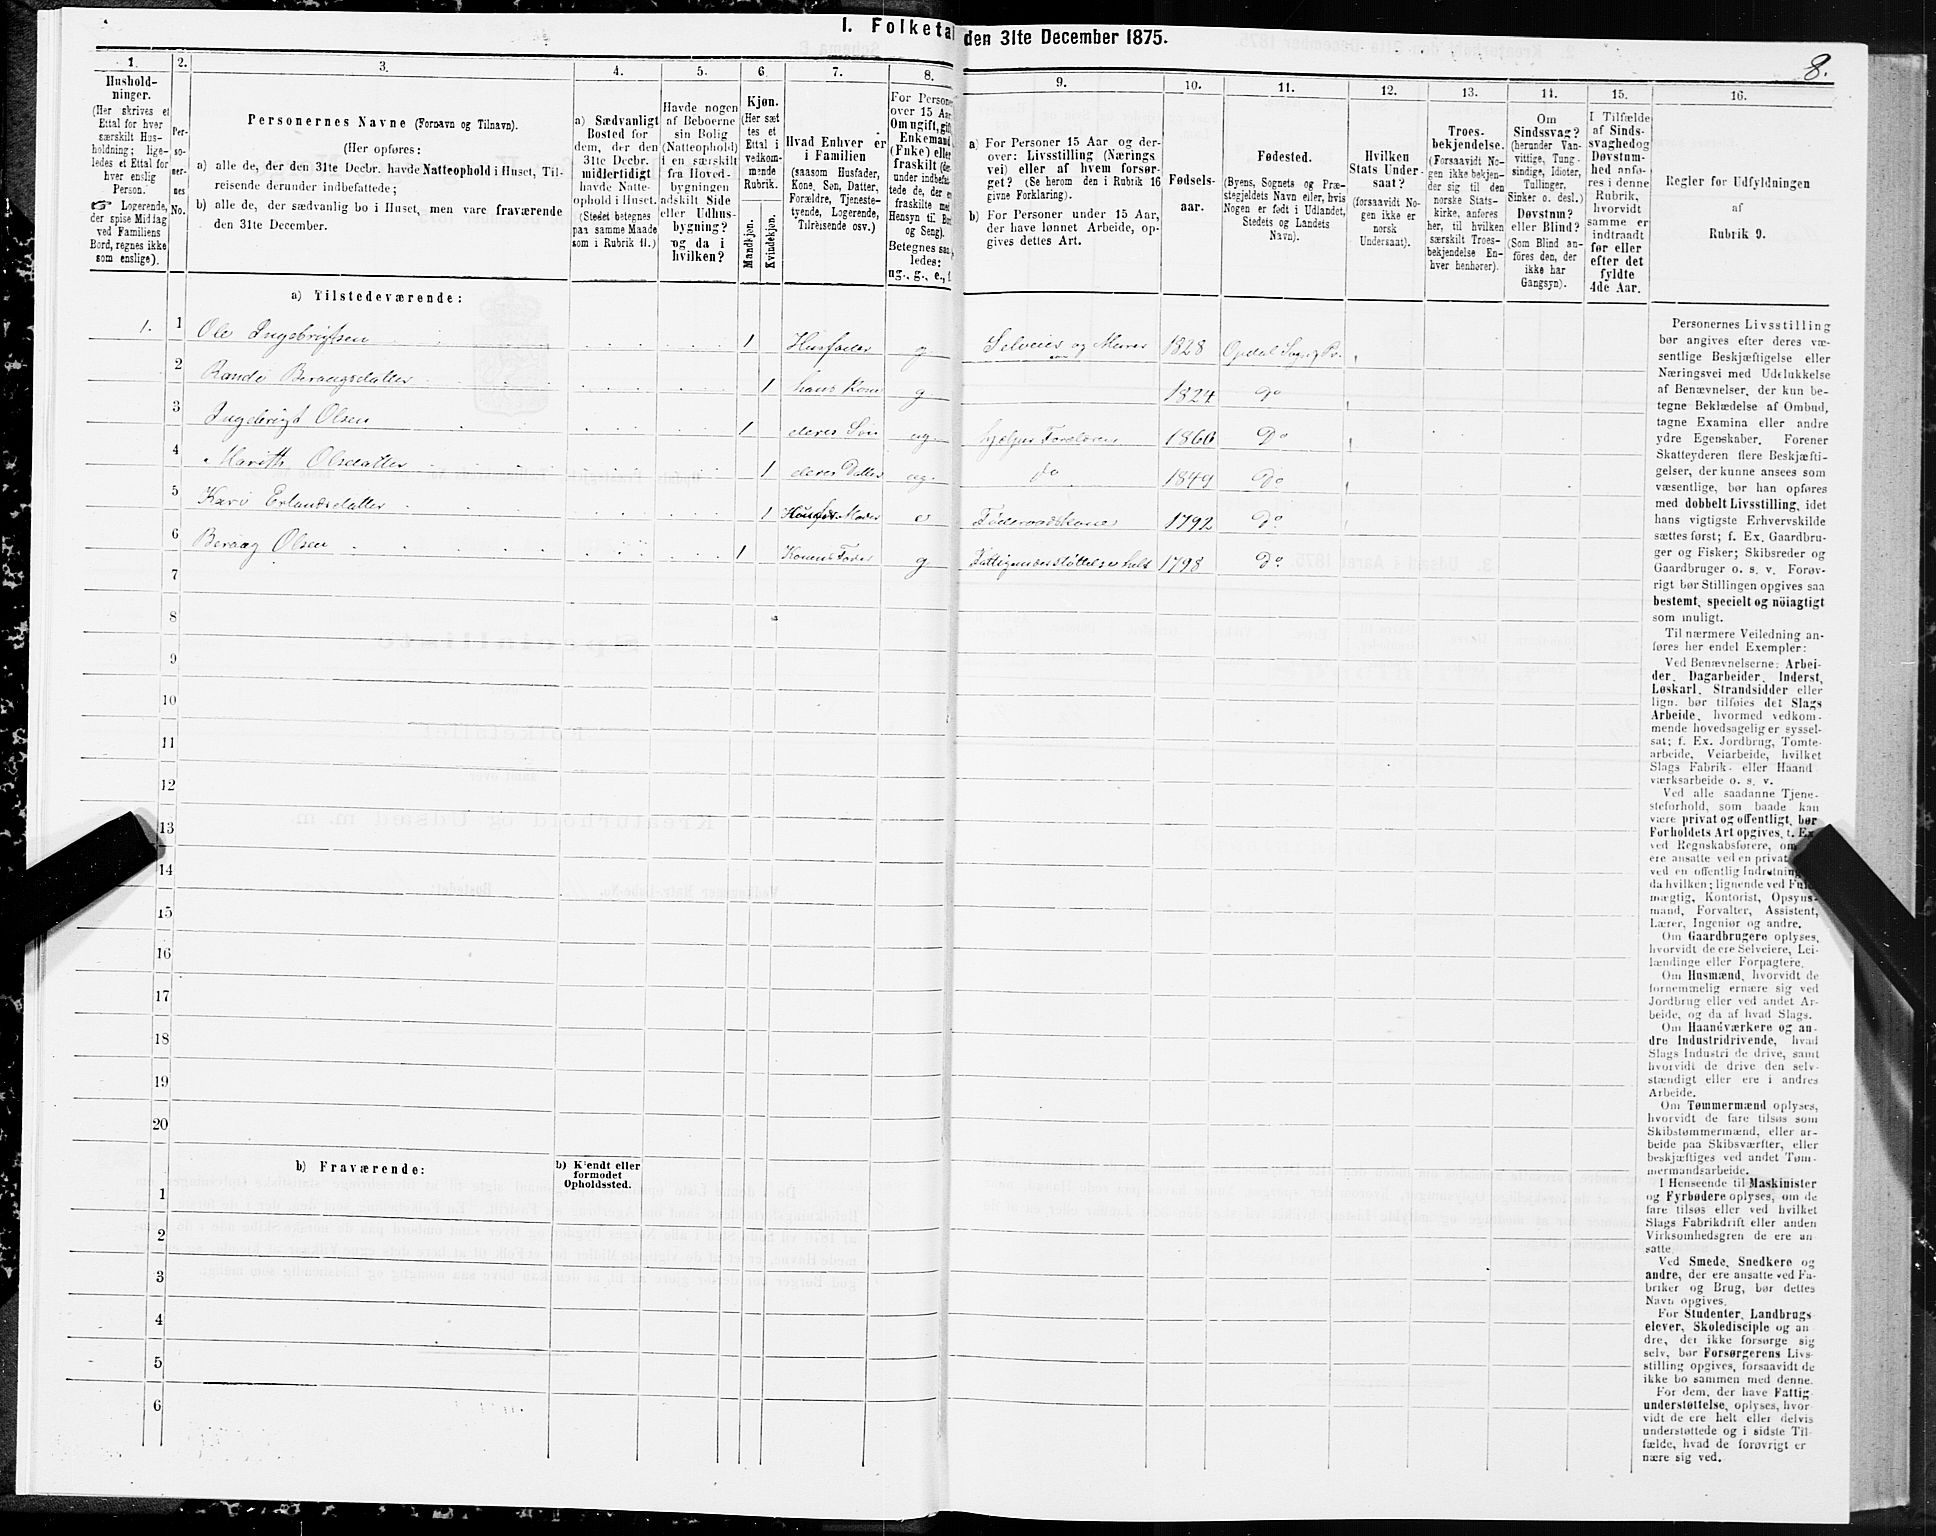 I. Folketal den 31te December 1875.
8.
1.
Hushold-
ninger.
(Her skrives et
Ettal for hver
særskilt Hus-
holdning; lige-
ledes et Ettal for
hver enslig
Person.
☞ Logerende,
der spise Middag
ved Familiens
Bord, regnes ikke
som enslige).
2.
Per-
so-
ner-
nes
No.
3.
Personernes Navne (Fornavn og Tilnavn).
(Her opføres:
a) alle de, der den 31te Decbr. havde Natteophold i Huset, Til-
reisende derunder indbefattede;
b) alle de, der sædvanlig bo i Huset, men vare fraværende
den 31te December.
4.
a) Sædvanligt
Bosted for
dem, der den
31te Decbr.
midlertidigt
havde Natte-
ophold i Huset.
(Stedet betegnes
paa samme Maade
som i Rubrik 11.)
5.
Havde nogen
af Beboerne
sin Bolig
(Natteophold)
i en særskilt
fra Hoved-
bygningen
adskilt Side
eller Udhus-
bygning?
og da i
hvilken?
6.
Kjøn.
(Her sæt
tes et
Ettal i
vedkom-
mende
Rubrik.
Mandkjøn.
Kvindekjøn.
7.
Hvad Enhver er
i Familien
(saasom Husfader,
Kone, Søn, Datter,
Forældre, Tjeneste-
tyende, Logerende,
Tilreisende osv.)
8.
For Persone
over 15 Aar
Om ugift, gift
Enkemand
(Enke) eller
fraskilt (der-
under indbefat-
tede de, der er
fraskilte med
Hensyn til Bord
og Seng).
Betegnes saa-
ledes:
ug., g., e., f.
9.
a) For Personer 15 Aar og der-
over: Livsstilling (Nærings
vei) eller af hvem forsør-
get? (Se herom den i Rubrik 16
givne Forklaring).
b) For Personer under 15 Aar,
der have lønnet Arbeide, op-
gives dettes Art.
10.
Fødsels-
aar.
11.
Fødested.
(Byens, Sognets og Præ-
stegjeldets Navn eller, hvis
Nogen er født i Udlandet,
Stedets og Landets
Navn).
12.
Hvilken
Stats Under-
saat?
(forsaavidt No-
gen ikke er
norsk
Undersaat).
13.
Troes-
bekjendelse.
(Forsaavidt No-
gen ikke bekjen-
der sig til den
norske Stats-
kirke, anføres
her, til hvilken
særskilt Troes-
bekjendelse En-
hver henhører).
14.
Om
Sindssvag?
(herunder Van-
vittige, Tung-
sindige, Idioter,
Tullinger,
Sinker o. desl.)
Døvstum?
eller Blind?
(Som Blind an-
føres den, der
ikke har
Gangsyn).
15.
I Tilfælde
af Sinds-
svaghed og
Døvstum-
hed anfø-
res i denne
Rubrik,
hvorvidt
samme er
indtraadt
før eller
efter det
fyldte
4de Aar.
16.
Regler for Udfyldningen
af
Rubrik 9.
a) Tilstedeværende:
1. 1 Ole Ingebrigtsen 1 Husfader g Selveier og Murer 1828 Opdal Sog. Pr.
2 Randi Beraugsdatter 1 hans Kone g 1824 Do
3 Ingebrigt Olsen 1 deres Søn ug. hjelper Forældrene 1860 Do
4 Marith Olsdatter 1 deres Datter ug. do 1849 Do
5 Kari Erlandsdatter 1 Moder e Føderaadskone 1792 Do
6 Beraug Olsen 1 Konens Fader g Fattigunderstøttelse helt 1798 Do
7
8
9
10
11
12
13
14
15
16
17
18
19
20
b) Fraværende:
b) Kjendt eller
formodet
Opholdssted.
1
2
3
4
5
6
Personernes Livsstilling
bør angives efter deres væ-
sentlige Beskjæftigelse eller
Næringsvei med Udelukkelse
af Benævnelser, der kun be-
tegne Beklædelse af Ombud,
tagne Examina eller andre
ydre Egenskaber. Forener
Skatteyderen flere Beskjæfti-
gelser, der kunne ansees som
væsentlige, bør han opføres
med dobbelt Livsstilling, idet
hans vigtigste Erhvervskilde
sættes først; f. Ex. Gaardbru-
ger og Fisker; Skibsreder og
Gaardbruger o. s. v. Forøv-
rigt bør Stillingen opgives saa
bestemt, specielt og nöiagtigt
som muligt.
Til nærmere Veiledning an-
føres her endel Exempler:
Ved Benævnelserne: Arbei-
der, Dagarbeider, Inderst,
Løskarl, Strandsidder eller
lign. bør tilføies det Slags
Arbeide, hvormed vedkom-
mende hovedsagelig er syssel-
sat; f. Ex. Jordbrug, Tomte-
arbeide, Veiarbeide, hvilket
Slags Fabrik- eller Haand
værksarbeide o. s. v.
Ved alle saadanne Tjene-
steforhold, som baade kan
være privat og offentligt, bør
Forholdets Art opgives, f. Ex.
ved Regnskabsførere, om
ere ansatte ved en privat
ved en offentlig Indretning
da hvilken; lignende ved Fuld
mægtig, Kontorist, Opsyns-
mand, Forvalter, Assistent,
Lærer, Ingeniør og andre.
Om Gaardbrugere oplyses,
hvorvidt de ere Selveiere, Lei-
lændinge eller Forpagtere.
Om Husmænd, hvorvidt de
fornemmelig ernære sig ved
Jordbrug eller ved andet Ar-
beide, og da af hvad Slags.
Om Haandværkere og an-
dre Industridrivende, hvad
Slags Industri de drive, samt
hvorvidt de drive den selv-
stændigt eller ere i andres
Arbeide.
Om Tømmermænd oplyses,
hvorvidt de fare tilsøs som
Skibstømmermænd, eller ar-
beide paa Skibsværfter, eller
beskjæftiges ved andet Tøm-
mermandsarbeide.
I Henseende til Maskinister
og Fyrbødere oplyses, om de
fare tilsøs eller ved hvilket
Slags Fabrikdrift eller anden
Virksomhedsgren de ere an-
satte.
Ved Smede, Snedkere og
andre, der ere ansatte ved Fa-
briker og Brug, bør dettes
Navn opgives.
For Studenter, Landbrugs
elever, Skoledisciple og an
dre, der ikke forsørge sig
selv, bør Forsørgerens Livs-
stilling opgives, forsaavidt de
ikke bo sammen med denne.
For dem, der have Fattig
understøttelse, oplyses, hvor-
vidt de ere helt eller delvis
understøttede og i sidste Til-
fælde, hvad de forøvrigt er
nære sig ved.